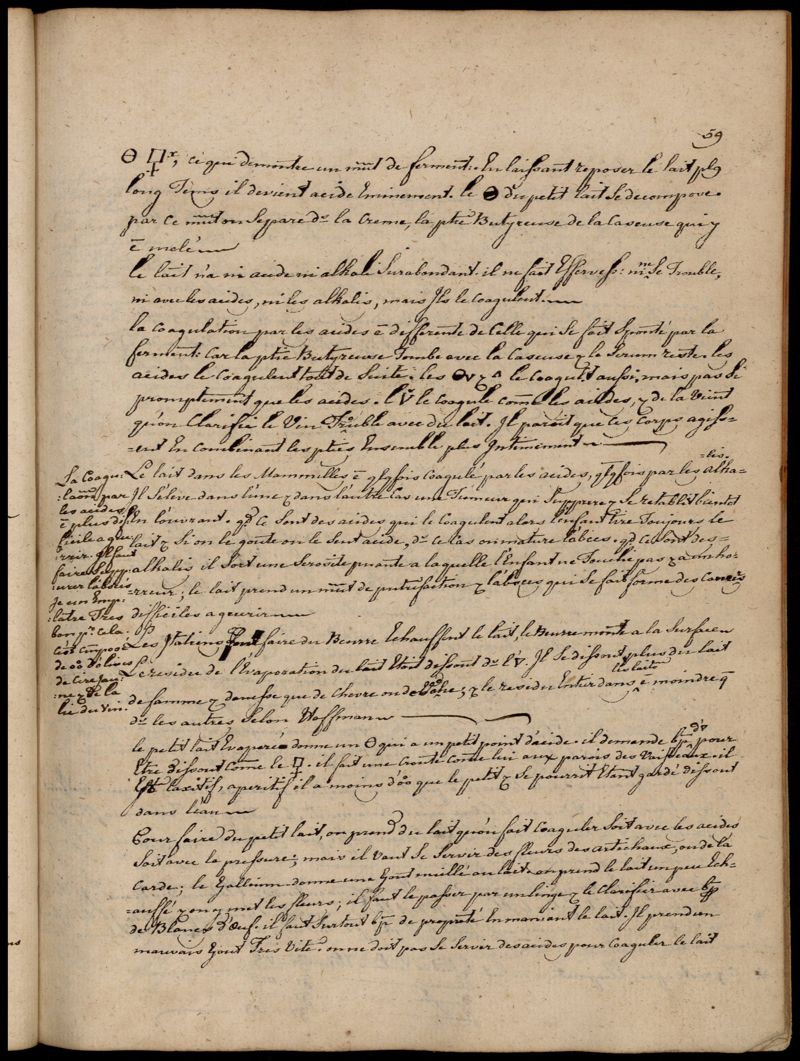 59
ce qui demontre un mm̅t de ferment: En laissant reposer le lait pl9
long Tems il devient acide Eminement. le du petit lait se decompose.
par ce mm̅t on separe de la Creme, la ptie Butyreuse de la Caseuse qui y
ē melé
le lait n'a ni acide ni alkali Surabondant. il ne fait Effervess: ni se Trouble,
ni avec les acides, ni les alkalis, mais Ils le Coagulent.
la Coagulation par les acides ē differente de Celle qui se fait sponté par la
ferment: Car la ptie Butyreuse Tombe avec la Caseuse & le Serum reste. les
acides le Coagulent tout de Suite; les & le Coagult aussi, mais pas si
promptement que les acides. l' le Coagule come les acides, & de la vient
qu'on Clarifie le Vin Trouble avec du lait. Il paroit que ces Corps agiss-
-ent En Combinant les pties Ensemble plus Intimement
Le lait dans les Mammelles ē qlqfois Coagulé par les acides, qlqfois par les alka-
-lis.
Il s'éleve dans l'une & dans l'autre Cas une Tumeur qui Suppure & se retablit bientot
En l'ouvrant. qd Ce sont des acides qui le Coagulent alors l'enfant tire Toujours le
lait & si on le goute on le sent acide, ds ce Cas on mature l'abcés. qd Ce sont des
alkalis il sort une Serosité puante a laquelle l'Enfant ne Touche pas & a en ho-
-rreur; le lait prend un mm̅t de putrefaction & l'abcés qui se fait forme des Cancers
difficiles a guerir
La Coagu-
-laōn par
les acides
ē plus dif-
ficile a gue-
-rir. il faut
faire Supp-
-urer l'abcés
Je un Emp-
-latre Tres
bon pr. cela
c'est composé
de d'olives
de Cire jau-
-ne & de la
lie du vin
Les Italiens pour faire du Beurre Echauffent le lait, le Beurre monte a la Surface
Le residu de l'Evaporation du lait Etant dissout ds l'. Il se dissout plus du lait
de famme & danesse que de Chevre ou de Vache; & le residu Entier dans les laits ē moindre q
ds les autres Selon Hoffmann
le petit lait Evaporé donne un qui a un petit point d'acide. il demande bp d' pour
Etre dissout Come le . il fait une Croute Come lui aux parois des Vaisseaux. il
Est laxitif, aperitif il a moins d' que le petit & se pourrit Etant gardé dissout
dans l'eau
Pour faire du petit lait, on prend du lait qu'on fait Coaguler soit avec les acides
Soit avec la pressure; mais il vaut se servir des fleurs des artichaux, ou de la
Carde; le Gallium donne une Gout miellé au lait. on prend le lait un peu Ech-
-auffé & on y met les fleurs; il faut le passer par un linge & le Clarifier avec bp
de Blancs d'Œuf. il faut Surtout bp de propreté En maniant le lait. Il prend un
mauvais Gout Tres Vite. on ne doit pas se Servir des acides pour Coaguler le lait